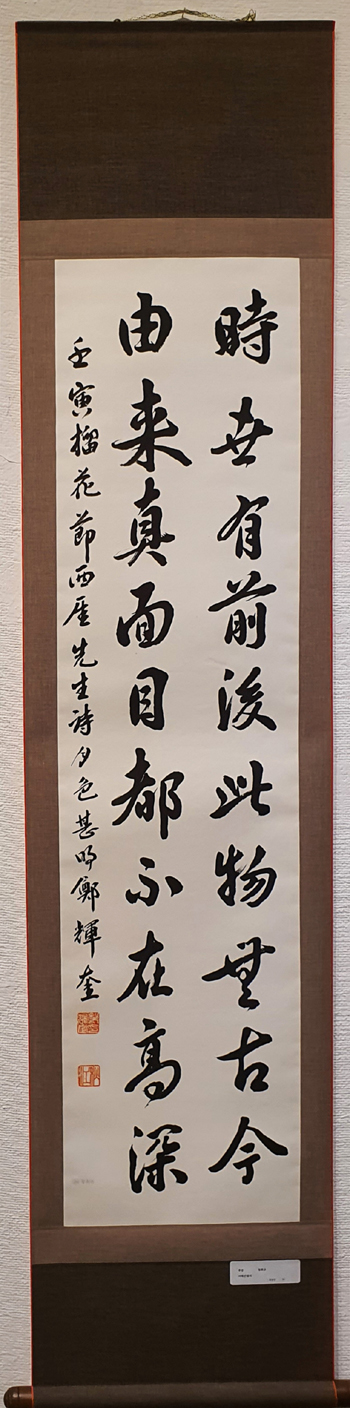 時世有前後此物無古今
由来真面目都不在高深
壬寅榴花節西崖先生詩月色甚明鄭輝奎